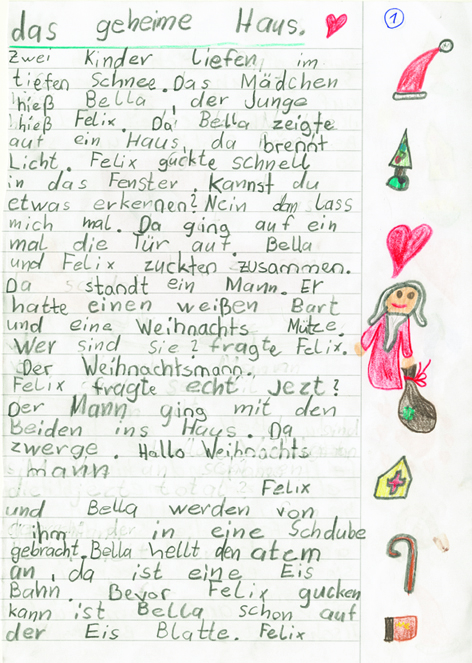 das geheime Haus.
1
Zwei Kinder liefen im
tiefen Schnee. Das Mädchen
hieß Bella, der Junge
hieß Felix. Da Bella zeigte
auf ein Haus, da brennt
Licht. Felix guckte schnell
in das Fenster. Kannst du
etwas erkernen? Nein dan lass
mich mal. Da ging auf ein
mal die Tür auf. Bella
und Felix zuckten zusammen.
Da standt ein Mann. Er
hatte einen weißen Bart
und eine Weihnachts Mütze.
Wer sind sie? fragte Felix.
Der Weihnachtsmann.
Felix fragte echt jezt?
Der Mann ging mit den
Beiden ins Haus. Da
zwerge. Hallo Weihnachts
mann
Felix
und Bella werden von
ihm in eine Schdube
gebracht. Bella hellt den atem
an, da ist eine Eis
Bahn. Bevor Felix gucken
kann ist Bella schon auf
der Eis Blatte. Felix